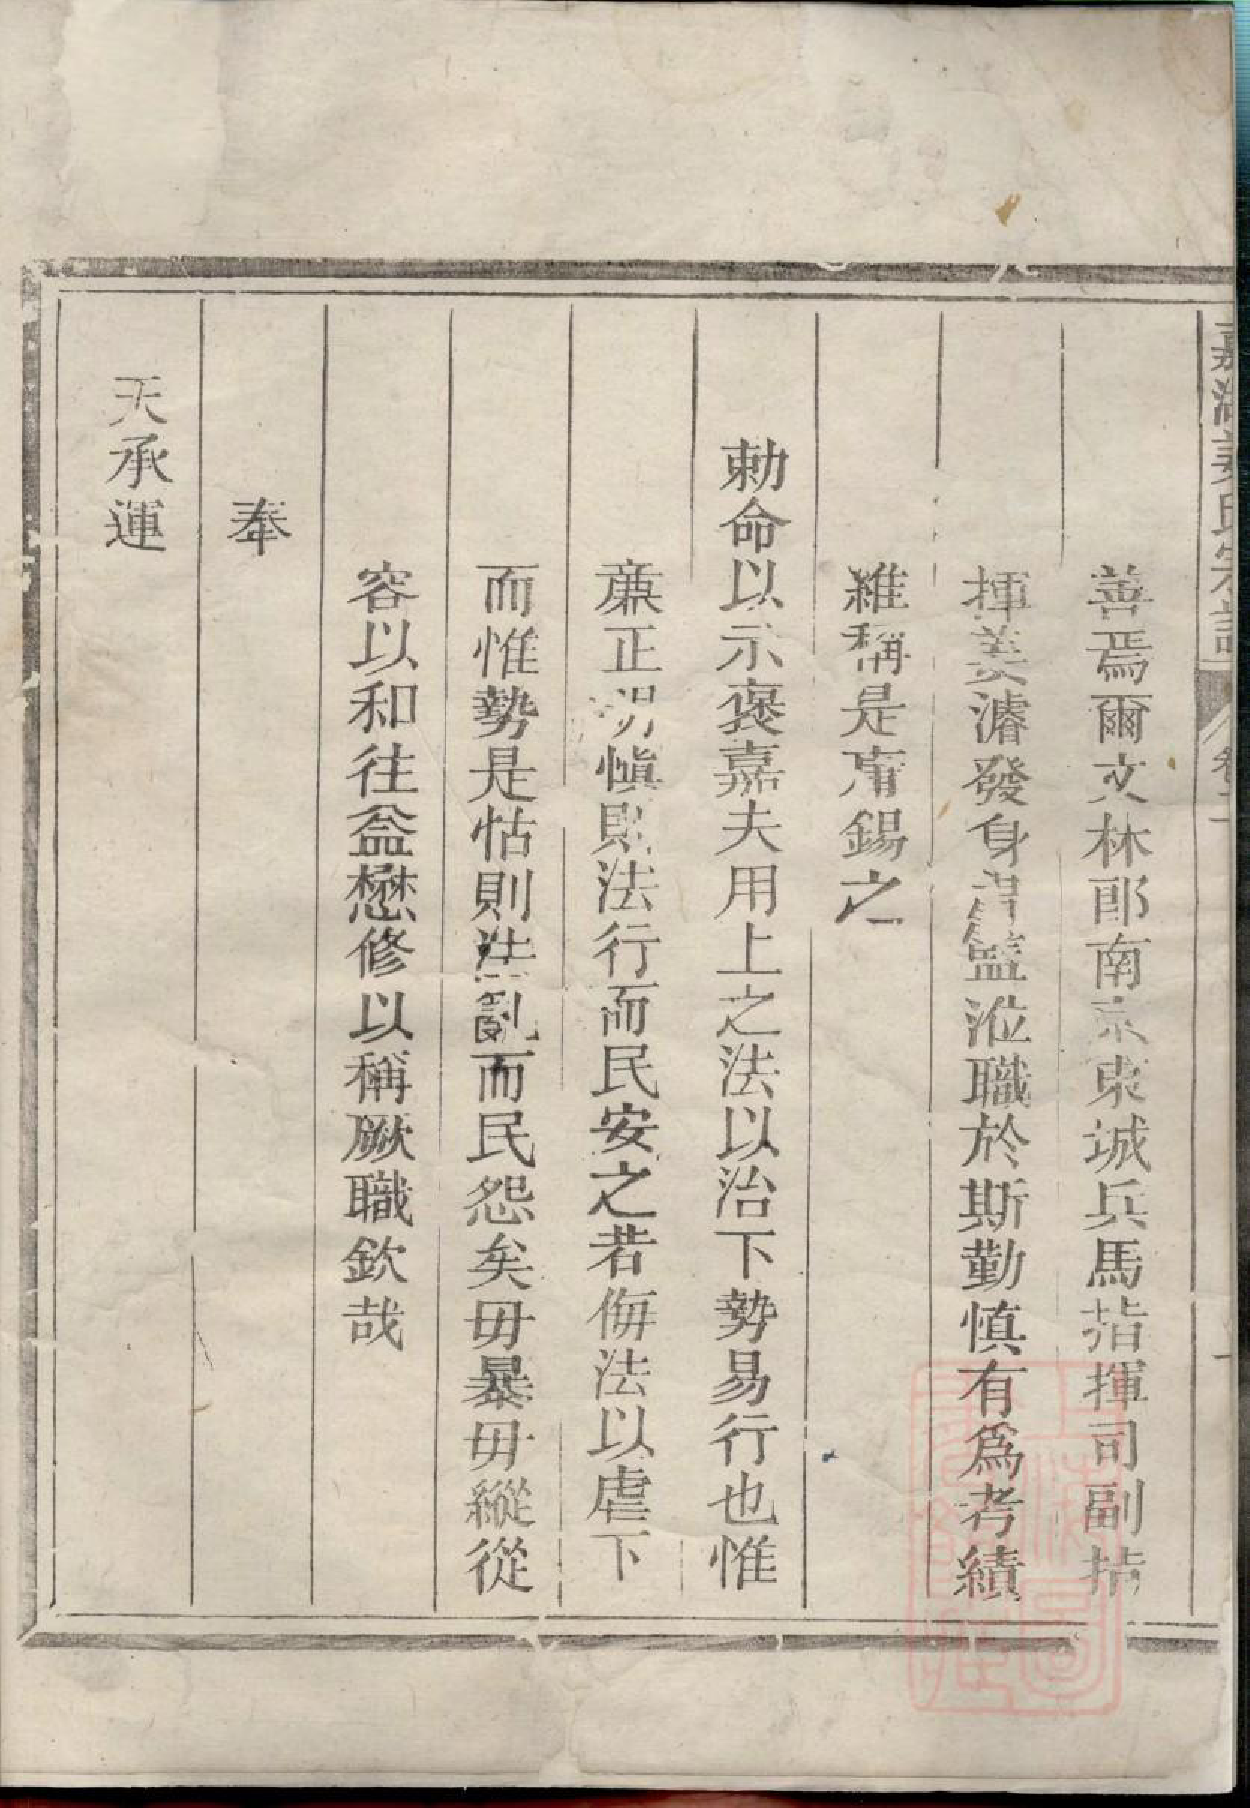 嘉湖姜氏宗譜 卷一 一
善焉爾文林郎南京東城兵馬指揮司副指
揮姜濬發身冑監涖職於斯勤慎有為考績
維稱是用錫之
勅命以示褒嘉夫用上之法以治下勢易行也惟
亷正明愼則法行而民安之若侮法以虐下
而惟勢是怙則法亂而民怨矣毋暴毋縱從
容以和往益懋修以稱厥職欽哉
奉
天承運